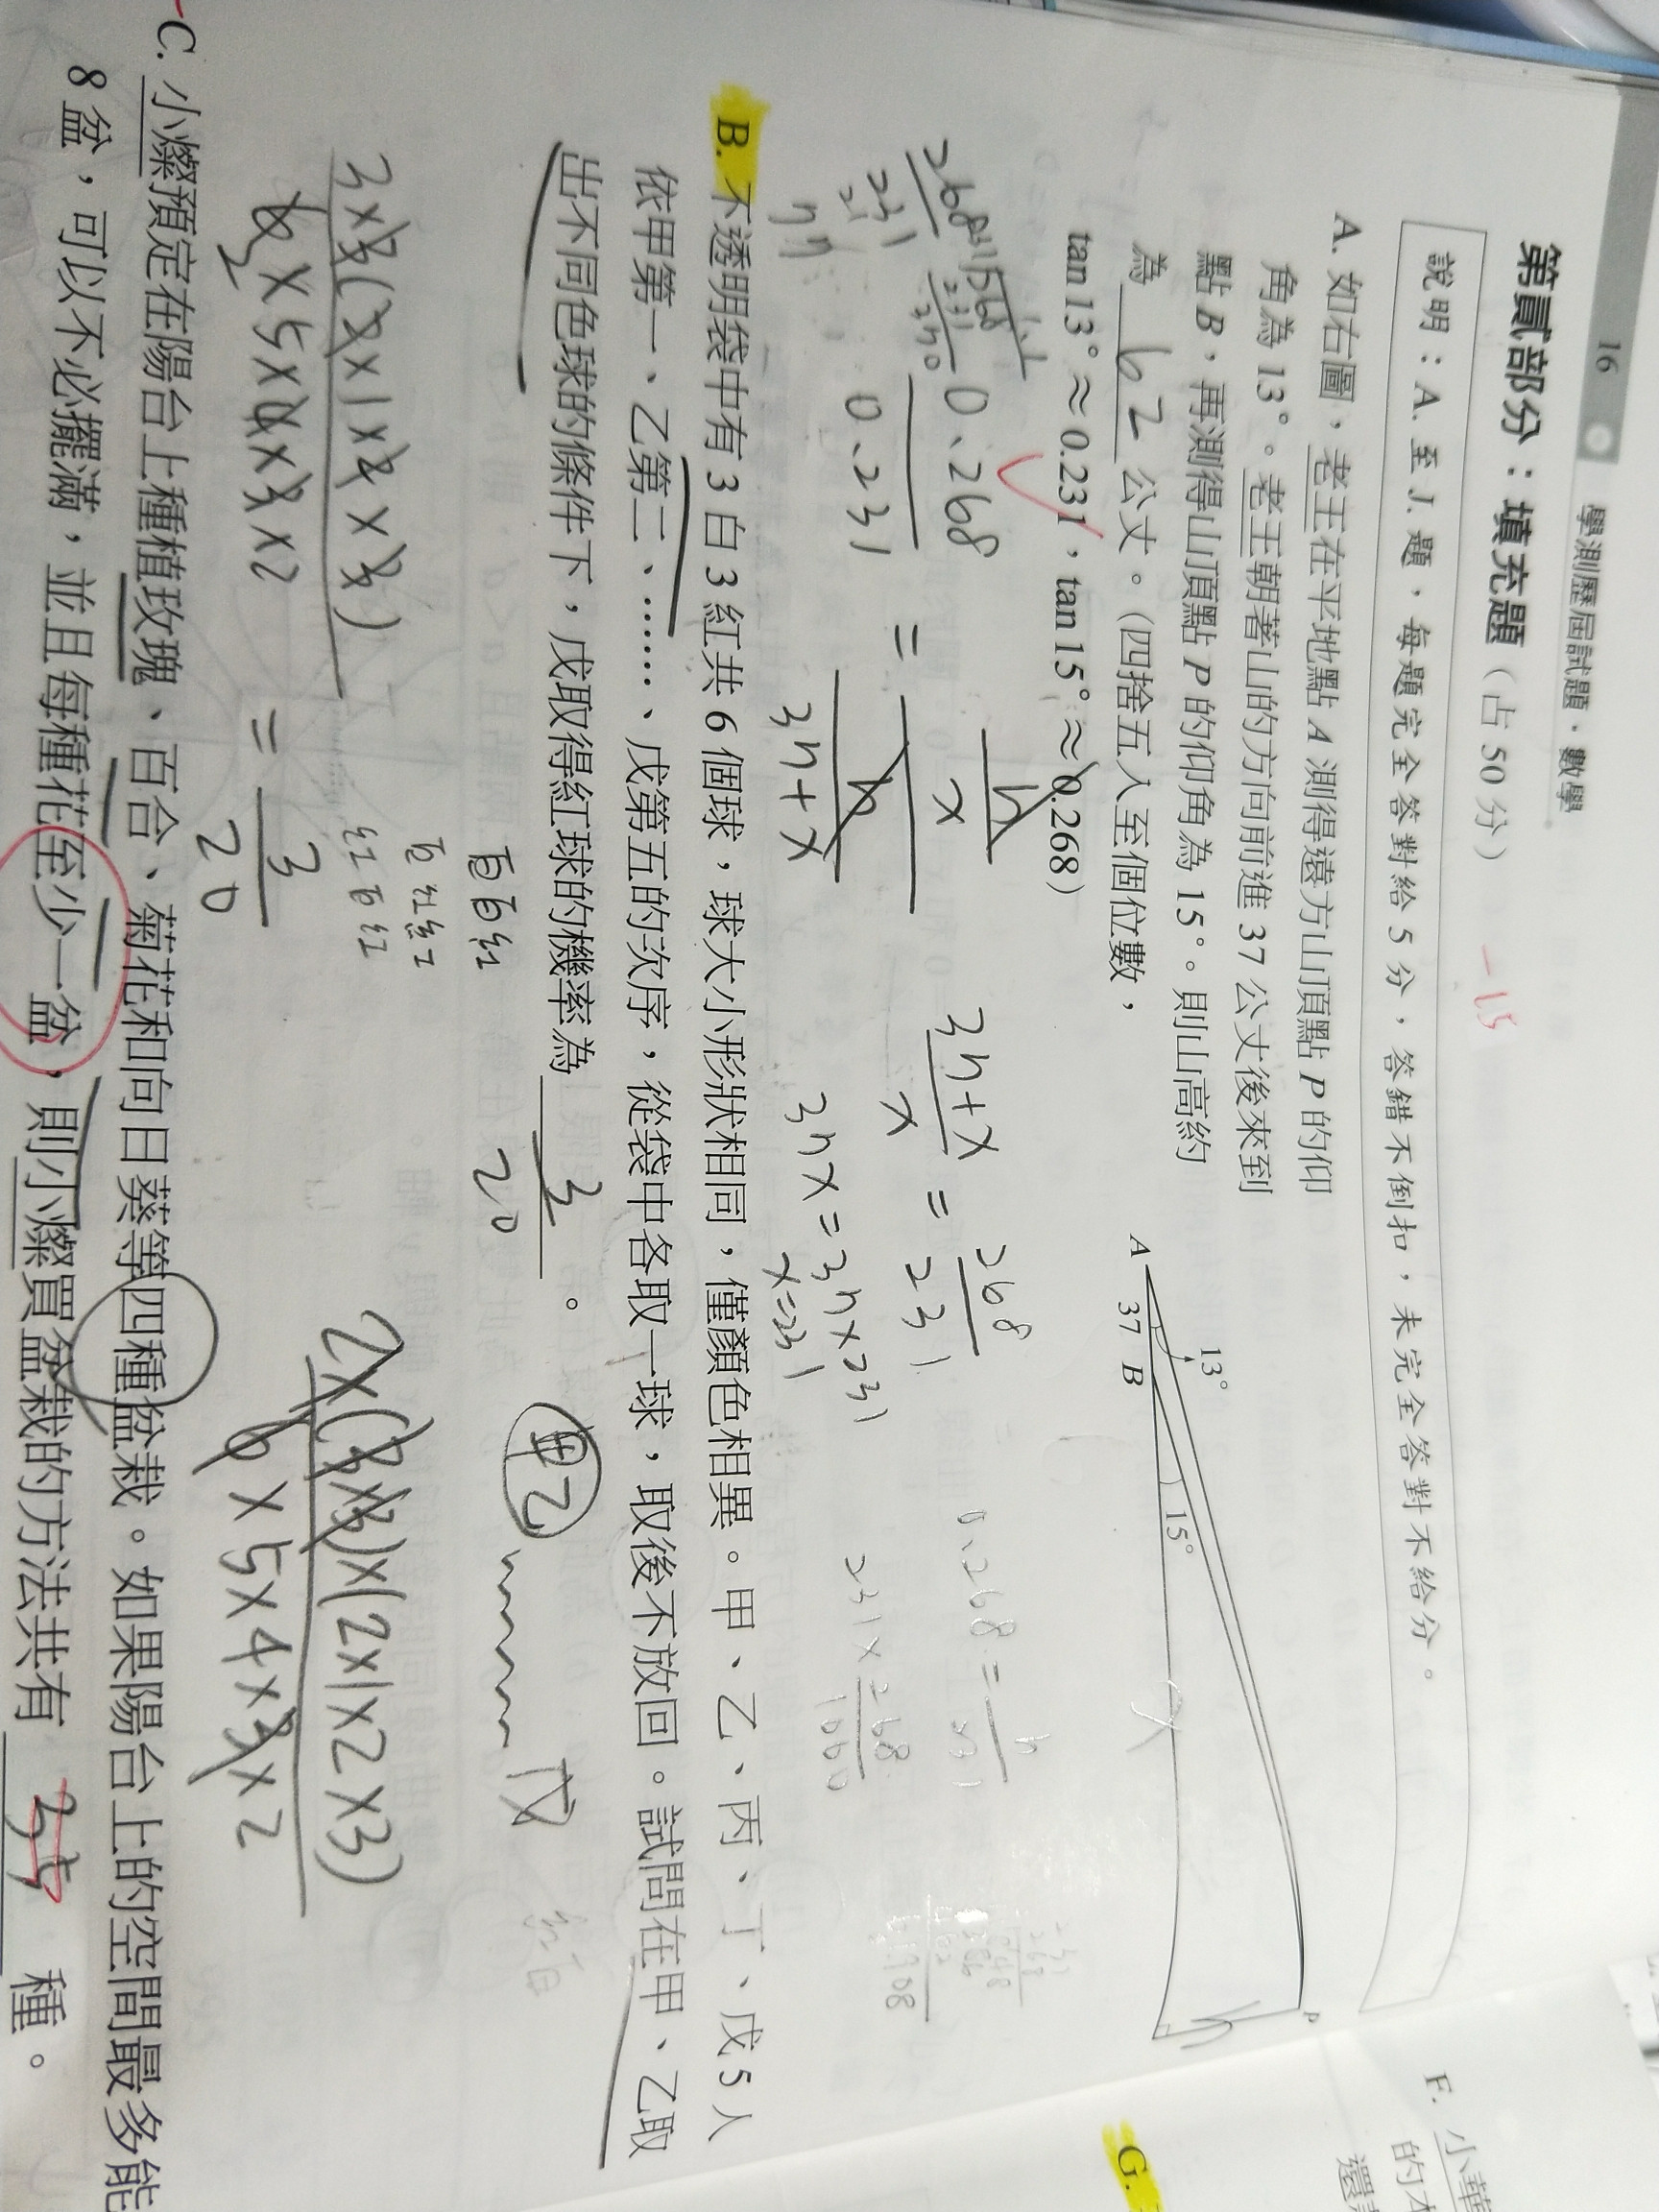 16 學測歷屆試題・數學
第貳部分：填充題（占 50 分） -15
說明：A. 至 J. 題，每題完全答對給 5 分，答錯不倒扣，未完全答對不給分。
A. 如右圖，老王在平地點 A 測得遠方山頂點 P 的仰
角為 13°。老王朝著山的方向前進 37 公丈後來到
點 B，再測得山頂點 P 的仰角為 15°。則山高約
為 62 公丈。（四捨五入至個位數，
tan 13° ≈ 0.231，tan 15° ≈ 0.268）
A 37 B 13° 15° P
h
0.268
0.231
=
h
x
h
37+x
37+x
x
=
268
231
37x = 37×231
x=231
0.268 =
h
231
231×
268
1000
B. 不透明袋中有 3 白 3 紅共 6 個球，球大小形狀相同，僅顏色相異。甲、乙、丙、丁、戊 5 人
依甲第一、乙第二、……、戊第五的次序，從袋中各取一球，取後不放回。試問在甲、乙取
出不同色球的條件下，戊取得紅球的機率為 3 。
20
甲乙 戊
白白紅
白紅紅
紅白紅
紅白
3×3(2×1×2×3)
6×5×4×3×2
=
3
20
2×(3×3)×(2×1×2×3)
6×5×4×3×2
C. 小燦預定在陽台上種植玫瑰、百合、菊花和向日葵等四種盆栽。如果陽台上的空間最多能
8 盆，可以不必擺滿，並且每種花至少一盆，則小燦買盆栽的方法共有 35 種。
F. 小華
的本
還
G.